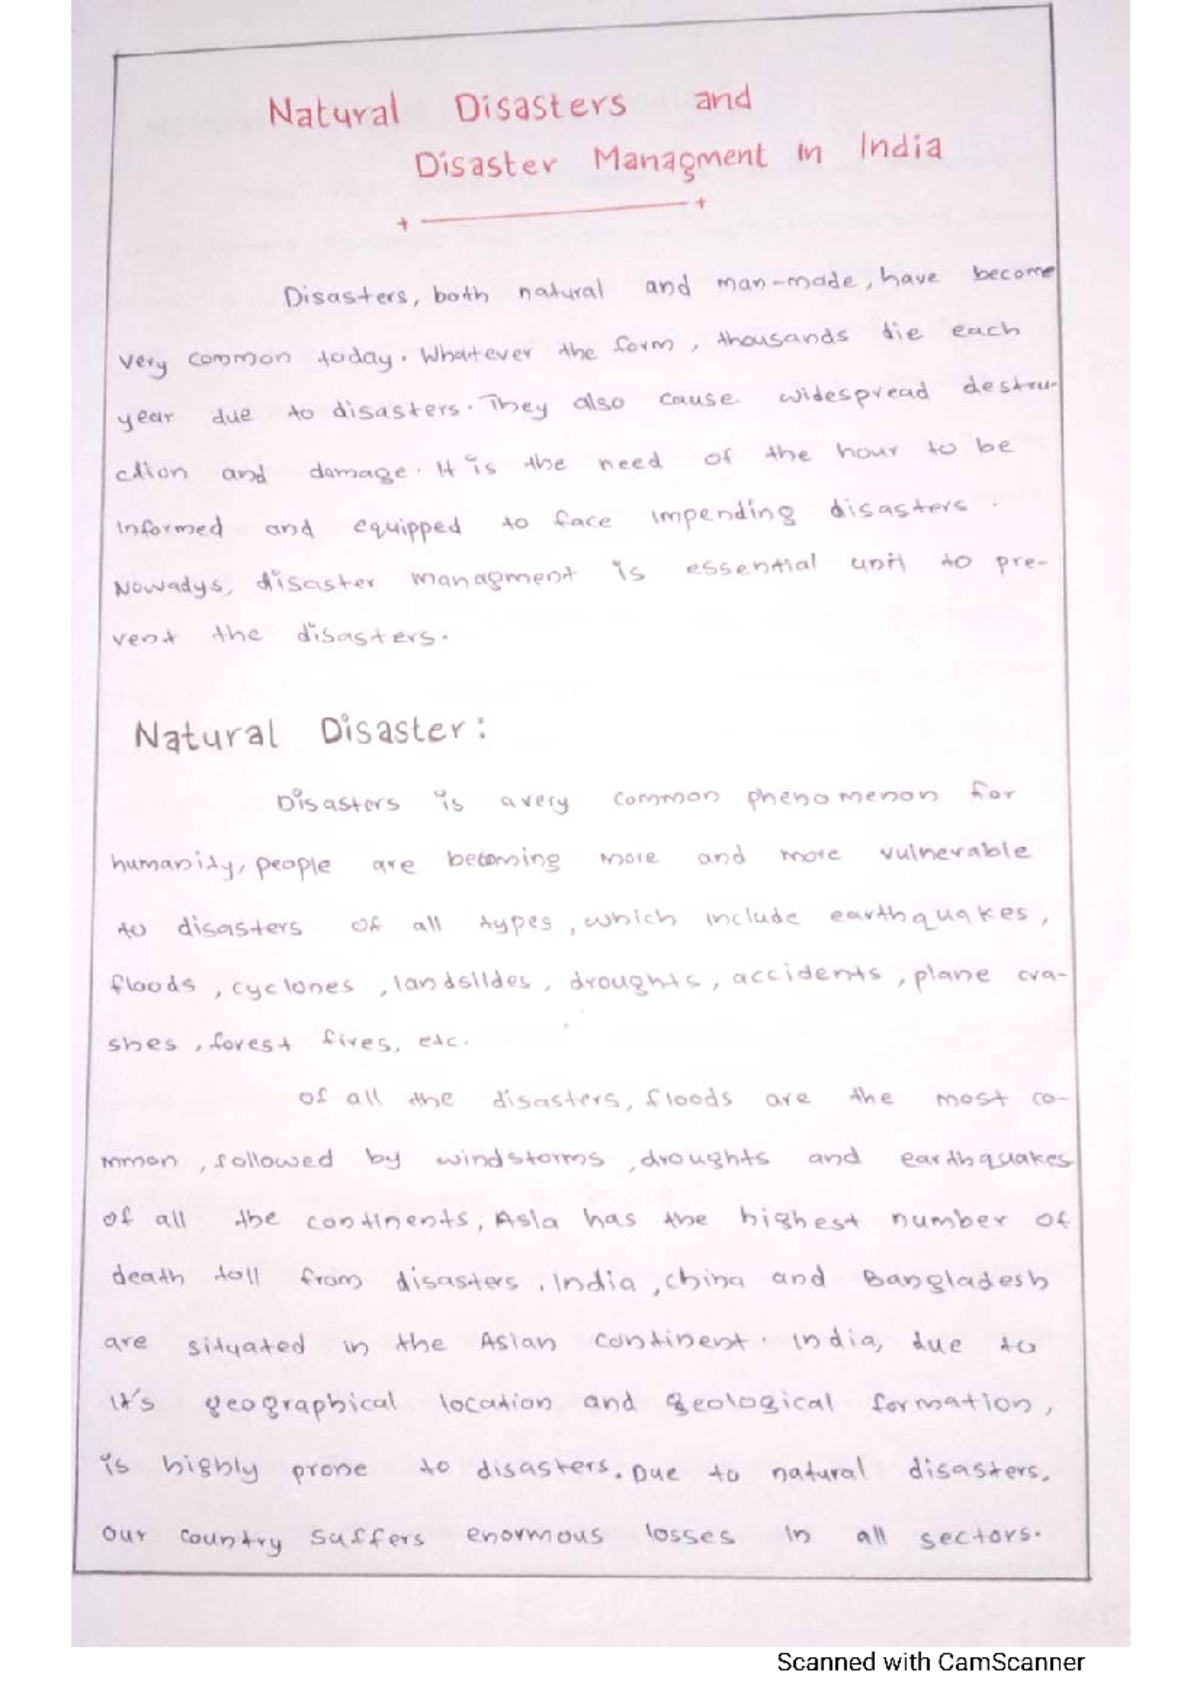 Natural Disasters and
Disaster Managment in India
Disasters, both natural and man-made, have become
very common today. Whatever the form, thousands die each
year due to disasters. They also cause widespread destru-
ction and damage. It is the need of the hour to be
informed and equipped to face impending disasters.
Nowadys, disaster managment is essential unit to pre-
vent the disasters.
Natural Disaster:
Disasters is a very common phenomenon for
humanity, people are becoming more and more vulnerable
to disasters of all types, which include earthquakes,
floods, cyclones, landslides, droughts, accidents, plane cra-
shes, forest fires, etc.
Of all the disasters, floods are the most co-
mmon, followed by windstorms, droughts and earthquakes
of all the continents, Asia has the highest number of
death toll from disasters. India, china and Bangladesh
are situated in the Asian continent. India, due to
it's geographical location and geological formation,
is highly prone to disasters. Due to natural disasters,
our country suffers enormous losses in all sectors.
Scanned with CamScanner